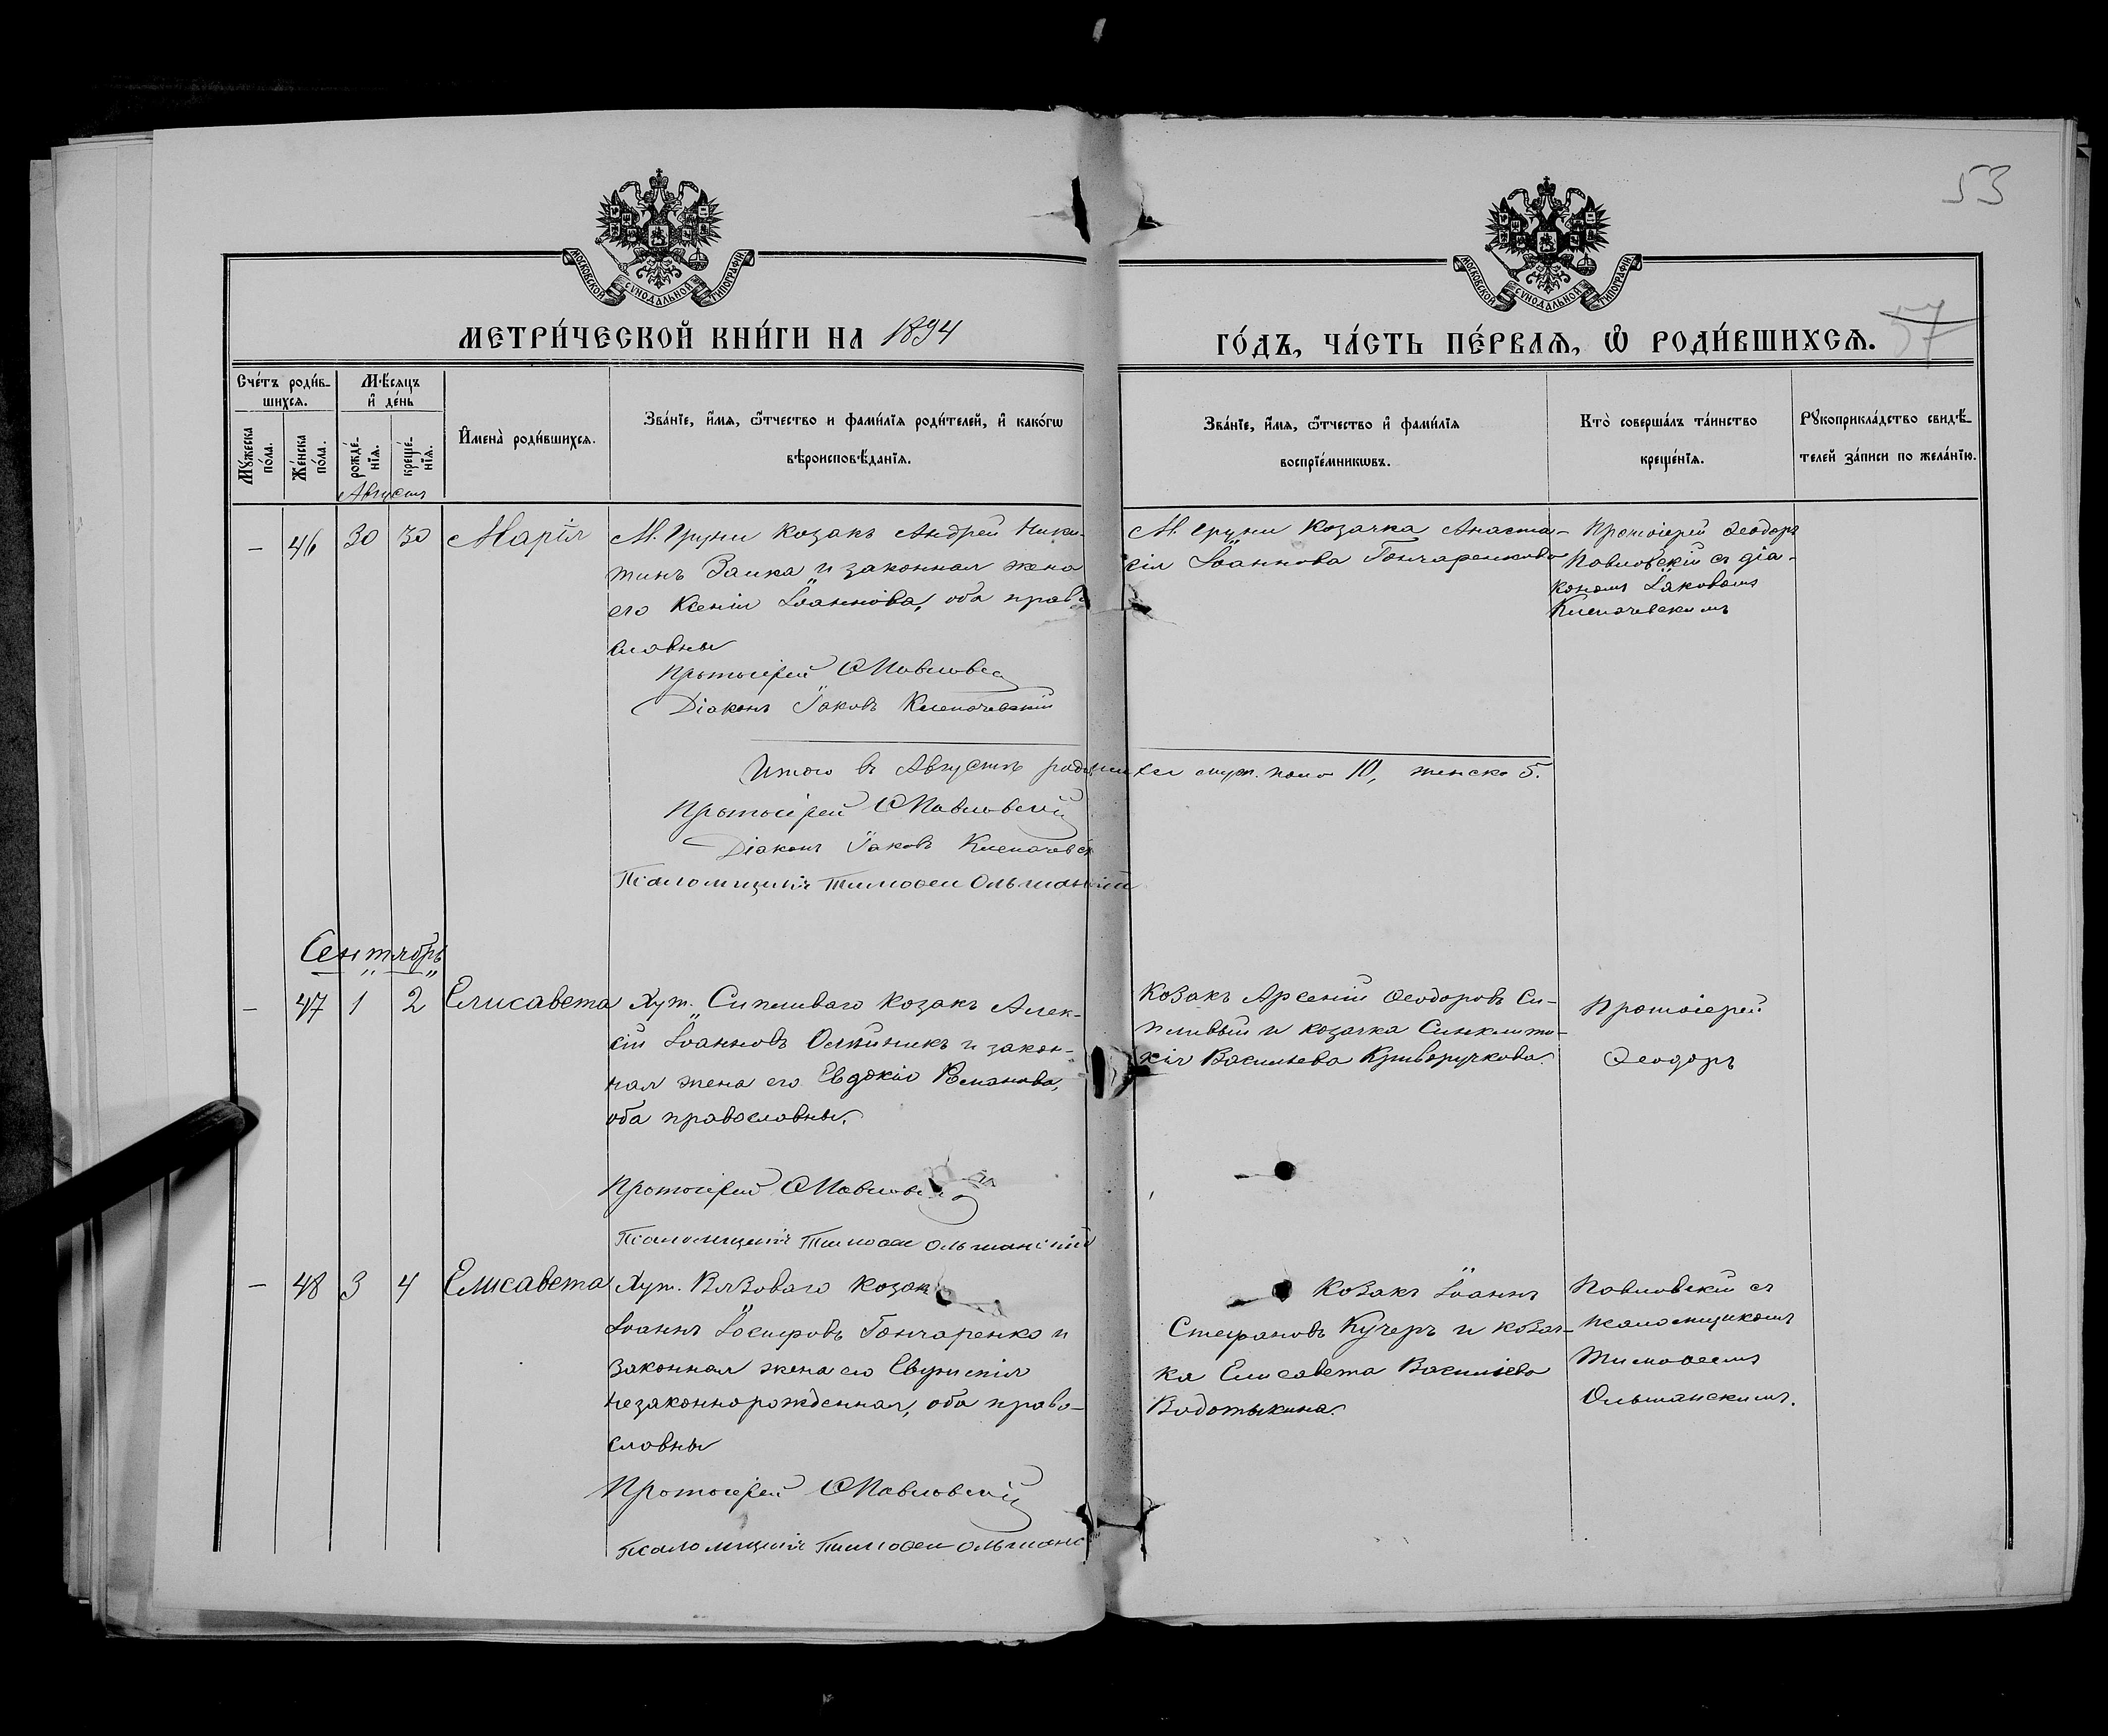 53
МОСКОВСКОЙ СѴНОДАЛЬНОЙ ТИПОГРАФІИ
МОСКОВСКОЙ СѴНОДАЛЬНОЙ ТИПОГРАФІИ
МЕТРИ́ЧЕСКОЙ КНИ́ГИ НА 1894
ГО́ДЪ, ЧА́СТЬ ПЕ́РВАѦ, Ѽ РОДИ́ВШИХСѦ.
57
Сче́тъ роди́в-
шихсѧ.
Мꙋ́жеска по́ла.
Же́нска по́ла.
Мѣ́сяцъ
и҆ де́нь
рожде́-нїѧ.
креще́-нїѧ.
И҆мена̀ роди́вшихсѧ.
Зва́нїе, и҆́мѧ, ѻ҆́тчество и фами́лїѧ роди́телей, и҆ како́гѡ
вѣроисповѣ́данїѧ.
Зва́нїе, и҆́мѧ, ѻ҆́тчество и҆ фами́лїѧ
воспрїе́мникѡвъ.
Кто̀ соверша́лъ та́инство
креще́нїѧ.
Рꙋкоприкла́дство свидѣ́-
телей за́писи по жела́нїю.
Августъ
– 46 30 30 Марія
М. Груни козакъ Андрей Ники-
тинъ Заика и законная жена
его Ксенія Іоаннова, оба право
славны
Протоіерей Ѳ Павловс
Діаконъ Іаковъ Клепачевскій
М. Груни козачка Анаста-
сія Іоаннова Гончаренкова
Протоіерей Ѳеодоръ
Павловскій съ діа-
кономъ Іаковомъ
Клепачевскимъ
Итого въ Августѣ родившихся муж. пола 10, женска 5.
Протоіерей Ѳ Павловскій
Діаконъ Іаковъ Клепачевск
Псаломщикъ Тимоѳей Ольшанскій
Сентябрь
– 47 1 2 Елисавета
Хут. Сипливаго козакъ Алек-
сій Іоанновъ Олейникъ и закон-
ная жена его Евдокія Романова,
оба православны.
Протоіерей Ѳ Павловс
Псаломщикъ Тимоѳей Ольшанскій
Козакъ Арсеній Ѳеодоровъ Си-
пливый и козачка Синклити-
кія Васильева Криворучкова.
Протоіерей
Ѳеодоръ
– 48 3 4 Елисавета
Хут. Вязоваго козакъ
Іоаннъ Іосифовъ Гончаренко и
законная жена его Евфимія
незаконнорожденная, оба право-
славны
Протоіерей Ѳ Павловскій
Псаломщикъ Тимоѳей Ольшанс
Козакъ Іоаннъ
Стефановъ Кучеръ и козач-
ка Елисавета Василіева
Водотыкина.
Павловскій съ
псаломщикомъ
Тимоѳеемъ
Ольшанскимъ.